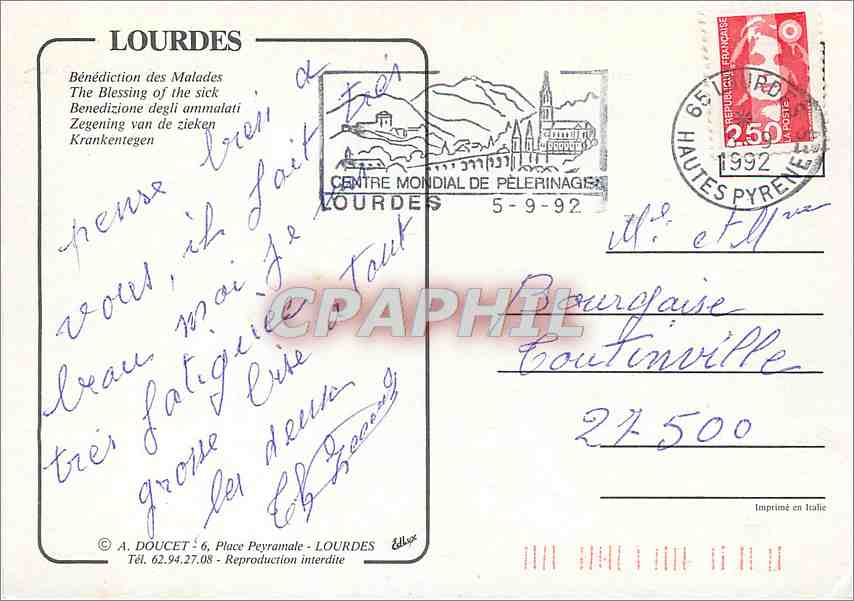 LOURDES
Bénédiction des Malades
The Blessing of the sick
Benedizione degli ammalati
Zegening van de zieken
Krankentegen
pense bien a
vous, il fait très
beau moi je
très fatiguée a tout
grosse bise
les deux
© A. DOUCET - 6, Place Peyramale - LOURDES
Tél. 62.94.27.08 - Reproduction interdite
Edlux
CENTRE MONDIAL DE PÈLERINAGES
LOURDES 5-9-92
REPUBLIQUE FRANÇAISE
2,50
LA POSTE
65 LOURDES
1992
HAUTES PYRENEES
CPAPHIL
Ml et Mme
Bourgaise
Toutinville
27500
Imprimé en Italie